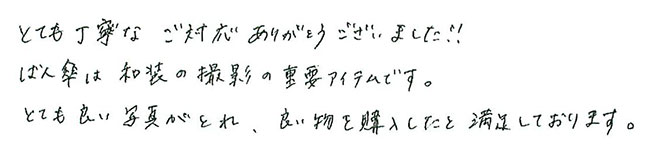 とても丁寧な ご対応 ありがとうございました!!
ばん傘は 和装の撮影の重要アイテムです。
とても良い写真がとれ、良い物を購入したと満足しております。